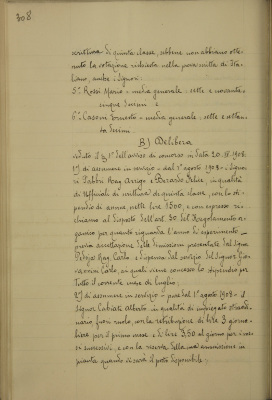 308
scrittura di quinta classe, sebbene non abbiano otte-
nuto la votazione richiesta nella prova scritta di Ita-
liano, anche i Signori:
5º. Rossi Mario - media generale: sette e novanta-
cinque decimi e
6º. Casoni Ernesto - media generale: sette e ottan-
ta decimi
B) Delibera
visto il § 1º dell'avviso di concorso in data 20. 1908.
1º) di assumere in servizio - dal 1º agosto 1908 - i Signo-
ri Fabbri Rag. Arrigo e Berardo Felice, in qualità
di Ufficiali di scrittura di quinta classe, con lo sti-
pendio di annue nette lire 1500, e con espresso ri-
chiamo al disposto dell'art. 30 del Regolamento or-
ganico per quanto riguarda l'anno di esperimento
previa accettazione delle dimissioni presentate dal Signor
Rag. Carlo e dispensa dal servizio del Signor
Carlo, ai quali viene concesso lo stipendio per
tutto il corrente mese di luglio;
2º) di assumere in servizio - pure dal 1º agosto 1908 - il
Signor Cabiati Alberto in qualità di impiegato straordi-
nario, fuori ruolo, con la retribuzione di lire 3 giorna-
liere per il primo mese, e di lire 3,50 al giorno per i me-
si successivi, e con la riserva della sua assunzione in
pianta quando vi sarà il posto disponibile;